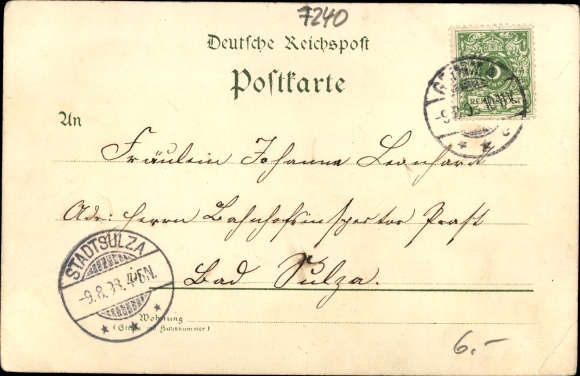 7240
Deutsche Reichspost
Postkarte
5
REICHSPOST
-9.8.
c
An
Fräulein Johanna Leonhard
Adr: Herrn Bahnhofsinspector Prast
Bad Sulza.
STADTSULZA
-9.8.93. 4-5N.
Wohnung
(Straße und Hausnummer)
6.-